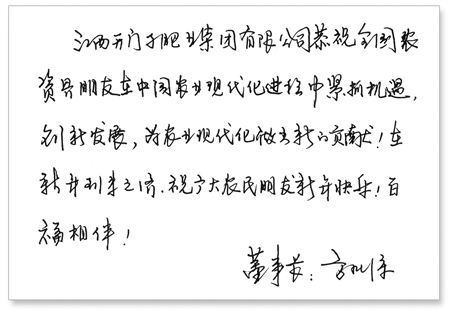 江西开门子肥业集团有限公司恭祝全国农
资界朋友在中国农业现代化进程中紧抓机遇,
创新发展,为农业现代化做出新的贡献!在
新年到来之际.祝广大农民朋友新年快乐!百
福相伴!
董事长: